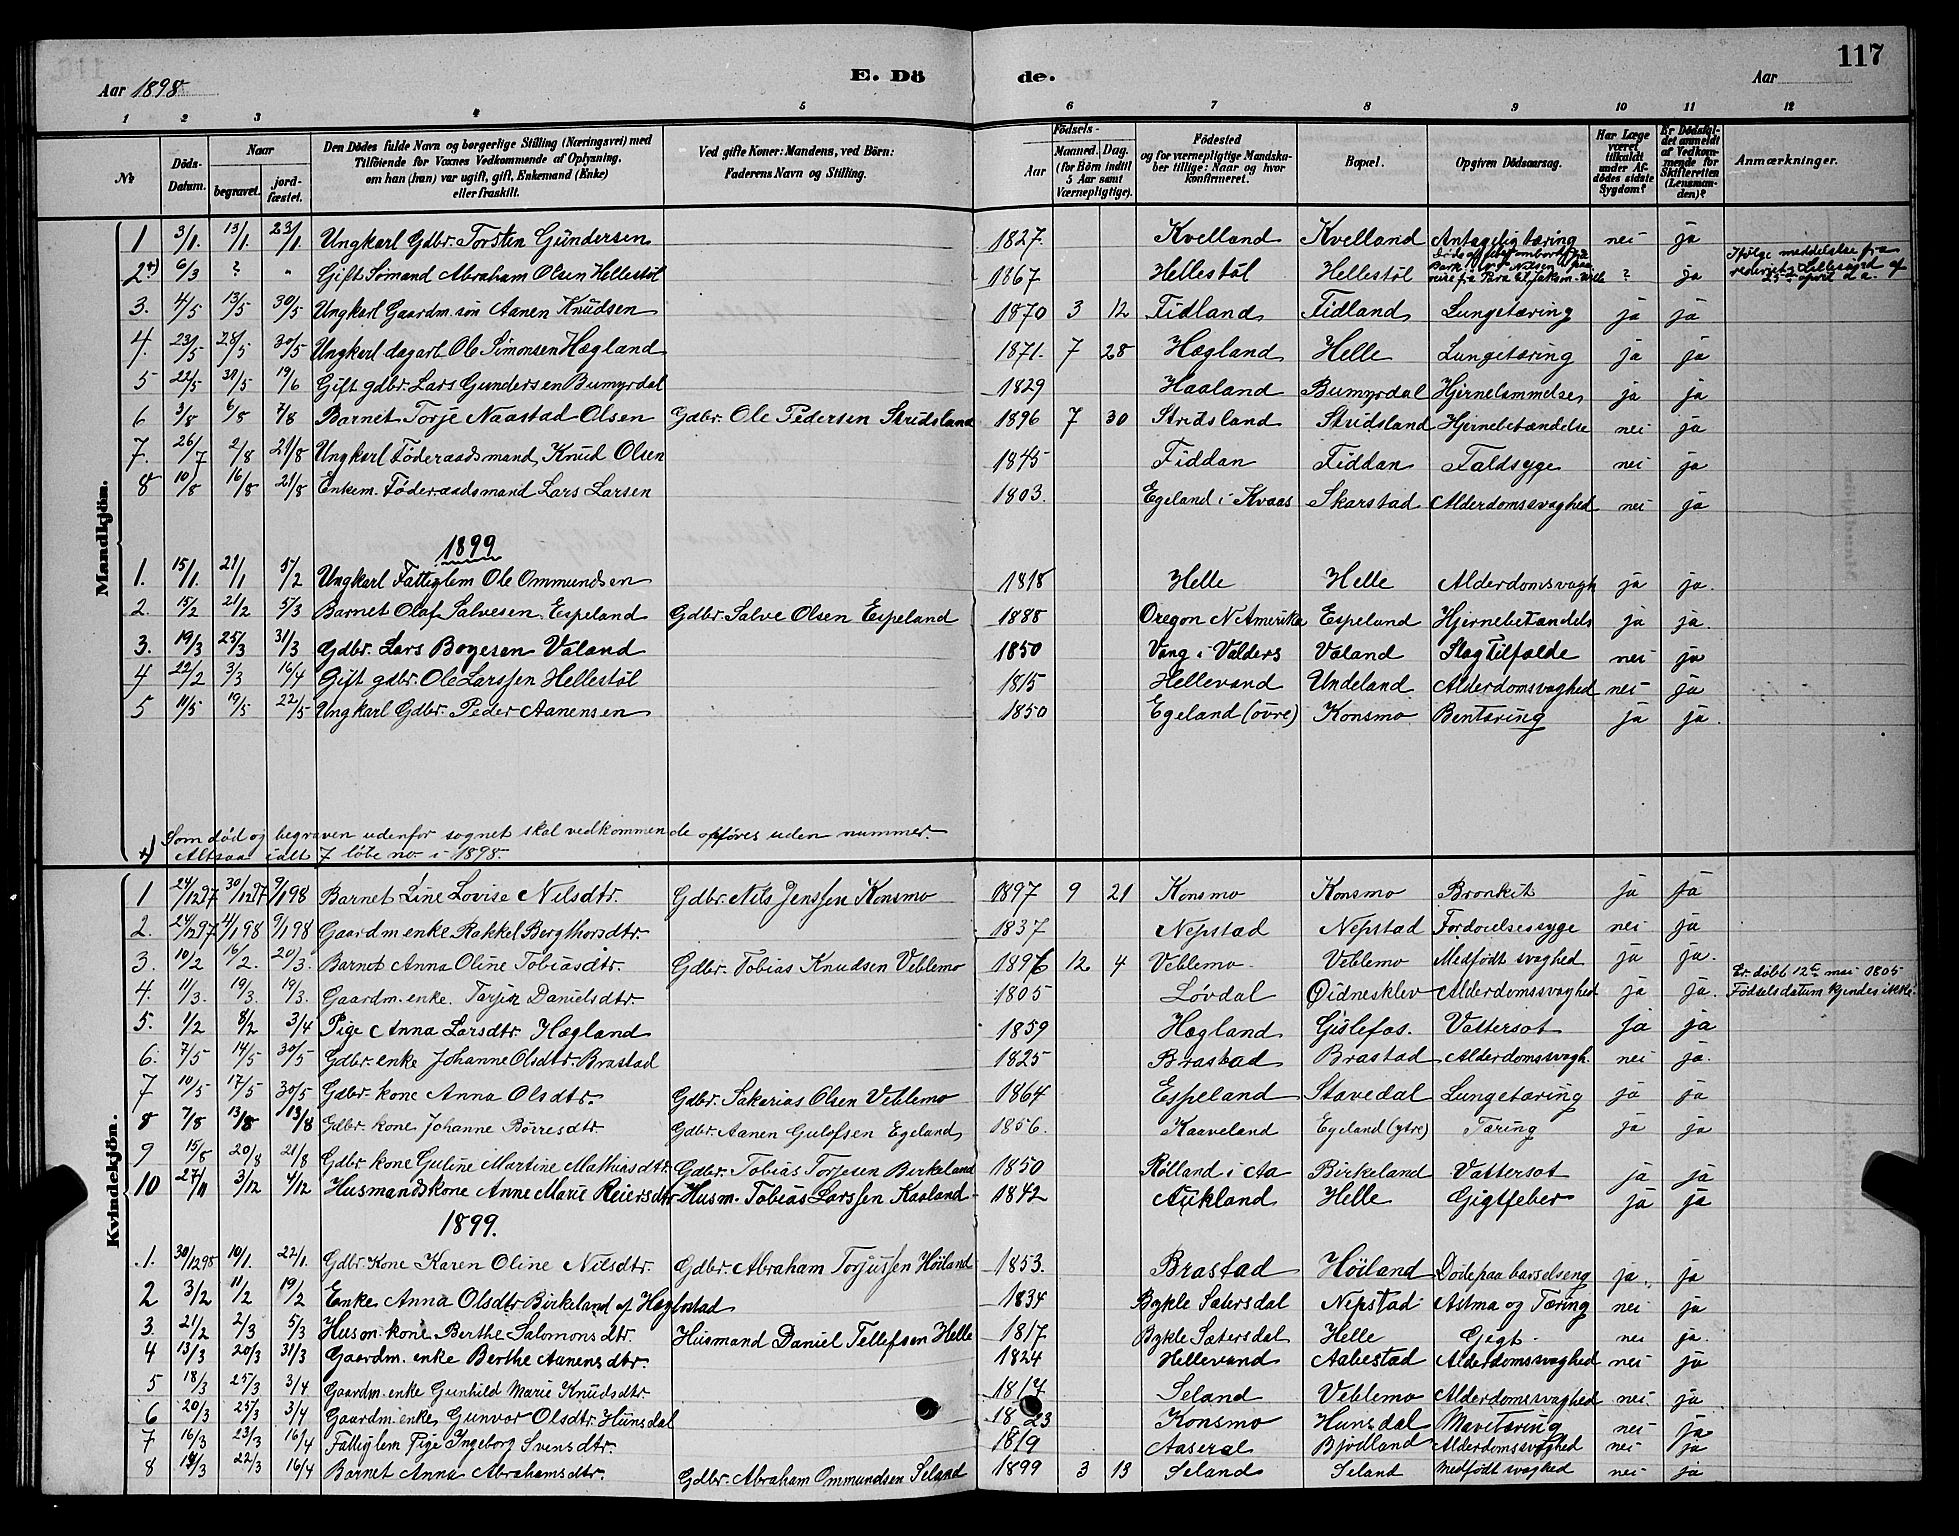 117
Aar 1898
E. Dö de.
Aar
1 2 3 4 5 6 7 8 9 10 11 12
No. Döds-Datum. Naar begravet. jordfæstet. Den Dödes fulde Navn og borgerlige Stilling (Næringsvei) med Tilföiende for Voxnes Vedkommende af Oplysning, om han (hun) var ugift, gift, Enkemand (Enke) eller fraskilt. Ved gifte Koner: Mandens, ved Börn: Faderens Navn og Stilling. Födsels- Aar Maaned. Dag. (for Börn indtil 5 Aar samt Værnepligtige). Födested og for værnepligtige Mandskaber tillige: Naar og hvor konfirmeret. Bopæl. Opgiven Dödsaarsag. Har Læge været tilkaldt under Afdödes sidste Sygdom? Er Dödsfaldet anmeldt af Vedkommende for Skifteretten (Lensmanden)? Anmærkninger.
Mandkjön.
1 3/1. 13/1. 23/1 Ungkarl Gdbr. Torsten Gundersen 1827. Kvelland Kvelland Antagelig tæring nei ja
2 +) 6/3 ? " Gift Sømand Abraham Olsen Hellestøl 1867 Hellestøl Hellestøl ? ja Ifølge meddelelse fra
3. 4/5 13/5 30/5 Ungkarl Gaardm. søn Aanen Knudsen 1870 3 12 Fidland Fidland Lungetæring ja ja
4. 23/5 28/5 30/5 Ungkarl dagarb. Ole Simonsen Hægland 1871. 7 28 Hægland Helle Lungetæring ja ja
5 22/5 31/5 19/6 Gift gdbr. Lars Gundersen Bumyrdal 1829 Haaland Bumyrdal Hjernelammelse ja ja
6 3/8 6/8 7/8 Barnet Torje Naastad Olsen Gdbr. Ole Pedersen Strudsland 1896 7 30 Strudsland Strudsland Hjernebetændelse nei ja
7. 26/7 2/8 21/8 Ungkarl Föderaadsmand Knud Olsen 1845 Fiddan Fiddan Faldsyge nei ja
8 10/8 16/8 21/8 Enkem. Föderaadsmand Lars Larsen 1803. Egeland i Kvaas Skarstad Alderdomssvaghed nei ja
1899
1. 15/1. 21/1 5/2 Ungkarl Fattiglem Ole Ommundsen 1818 Helle Helle Alderdomsvagh ja ja.
2. 15/2 21/2 5/3 Barnet Olaf Salvesen Espeland Gdbr. Salve Olsen Espeland 1888 Oregon N Amerika Espeland Hjernebetændels ja ja.
3. 19/3 25/3 31/3 Gdbr. Lars Boyesen Valand 1850 Vang i Valders Valand Slagtilfælde nei ja
4 22/2 3/3 16/4 Gift gdbr. Ole Larssen Hellestøl 1815 Hellevand Undeland Alderdomsvaghed nei ja
5 11/5 19/5 22/5 Ungkarl Gdbr. Peder Aanensen 1850 Egeland (övre) Konsmo Bentæring ja ja.
+) Som død og begraven udenfor sognet skal vedkommende opføres uden nummer.
Altsaa ialt 7 løbe no. i 1898.
Kvindekjön.
1 24/1297 30/1297 9/198 Barnet Line Lovise Nilsdtr. Gdbr. Nils Jenssen Konsmo 1897 9 21 Konsmo Konsmo Bronkit ja ja
2. 24/1297 4/198 9/198 Gaardm enke Rakkel Bergthorsdtr. 1837 Nepstad Nepstad Fordøielsessyge nei ja
3. 10/2 16/2. 20/3. Barnet Anna Oline Tobiasdtr. Gdbr. Tobias Knudsen Veblemo 1896 12 4 Veblemo. Veblemo Medfødt svaghed ja ja.
4. 11/3. 19/3. 19/3. Gaardm. enke. Tarjer Danielsdtr. 1805 Løvdal Øidnesklev Alderdomssvaghed ja ja. Er døbt 12te mai 1805 Fødselsdatum kjendes ikke.
5. 1/2 8/2 3/4 Pige Anna Larsdtr. Hægland 1859 Hægland Gislefos. Vattersot ja ja
6. 7/5 14/5 30/5 Gdbr. enke Johanne Olsdtr. Brastad 1825 Brastad Brastad Alderdomssvagh. nei ja.
7 10/5 17/5 30/5 Gdbr. kone Anna Olsdtr. Gdbr. Sakarias Olsen Veblemo 1864 Espeland Stavedal Lungetæring ja ja
8 7/8 13/8 13/8 Gdbr. kone Johanne Börresdtr. Gdbr. Aanen Gulofsen Egeland 1856. Kaaveland Egeland (ytre) Tæring ja ja
9 15/8 20/8 21/8 Gdbr. kone Guline Martine Mathiasdtr. Gdbr. Tobias Torjesen Birkeland 1850 Rølland i Aa Birkeland Vattersot ja ja
10 27/11 3/12 4/12 Husmandskone Anne Marie Reiersdtr. Husm. Tobias Larssen Kaaland 1842 Aukland Helle Gigtfeber ja ja
1899.
1. 30/1298 10/1. 22/1. Gdbr. Kone Karen Oline Nilsdtr. Gdbr. Abraham Torjussen Höiland 1853. Brastad Höiland Døde paa barselseng ja. ja
2 3/2 11/2 19/2 Enke Anna Olsdtr Birkeland af Hæglestad 1834 Bykle Sætersdal Nepstad Astma og Tæring nei ja
3. 21/2 2/3 5/3 Husm. kone Berthe Salomonsdtr. Husmand Daniel Tellefsen Helle 1817 Bykle Sætersdal Helle Gigt. nei ja.
4 13/3 20/3 31/3 Gaardm. enke Berthe Aanensdtr. 1824 Hellevand Aabestad Alderdomssvaghed nei ja
5 18/3 25/3 3/4 Gaardm. enke Gunhild Marie Knudsdtr 1817 Seland Veblemo Alderdomssvaghed nei ja
6 20/3 25/3 3/4 Gaardm. enke Gunvor Olsdtr. Hunsdal 1823 Konsmo Hunsdal Mavetæring nei ja
7 16/3 23/3 16/4 Fattiglem Pige Ingeborg Svensdtr. 1819 Aaseral Bjødland Alderdomssvaghed nei ja
8 14/3 22/3 16/4 Barnet Anna Abrahamsdtr. Gdbr. Abraham Ommundsen Seland 1899 3 13 Seland Seland Medfødt svaghed nei ja